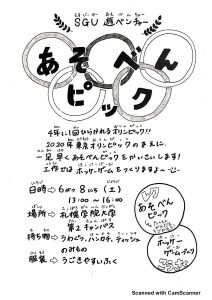 SGU 遊ベンチャー
あそべんピック
4年に1回ひらかれるオリンピック!!
2020年東京オリンピックのまえに、
一足早くあそべんピックをかいさいします!
工作ではボッチャゲームをつくりますよ〜
日時→ 6月8日(土)
13:00〜16:00
場所→ 札幌学院大学
第2キャンパス
持ち物→ うわぐつ、ハンカチ、ティッシュ
のみもの
服装→ うごきやすいふく
あそべん
ピック
ボッチャー
ゲームブーツ
Scanned with CamScanner